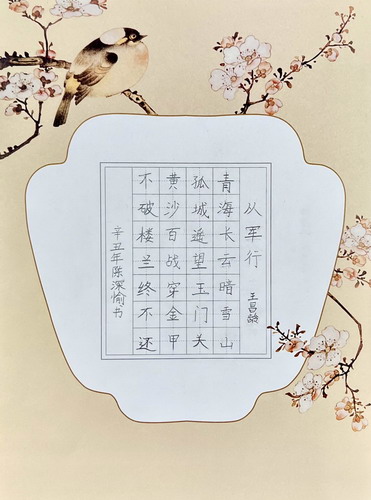 从军行
王昌龄
青海长云暗雪山
孤城遥望玉门关
黄沙百战穿金甲
不破楼兰终不还
辛丑年陈深愉书